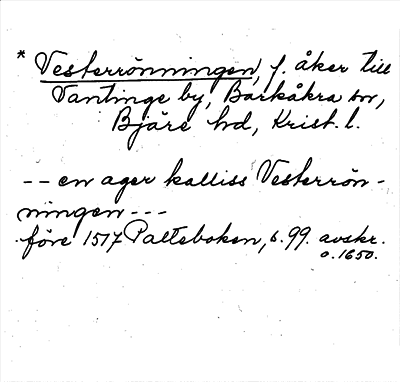 * Vesterrönningen, f. åker till
Vantinge by, Barkåkra sn,
Bjäre hd, Krist. l.
-- en ager kalliss Vesterrön-
ningen ---
före 1517 Palteboken, s. 99. avskr.
o. 1650.